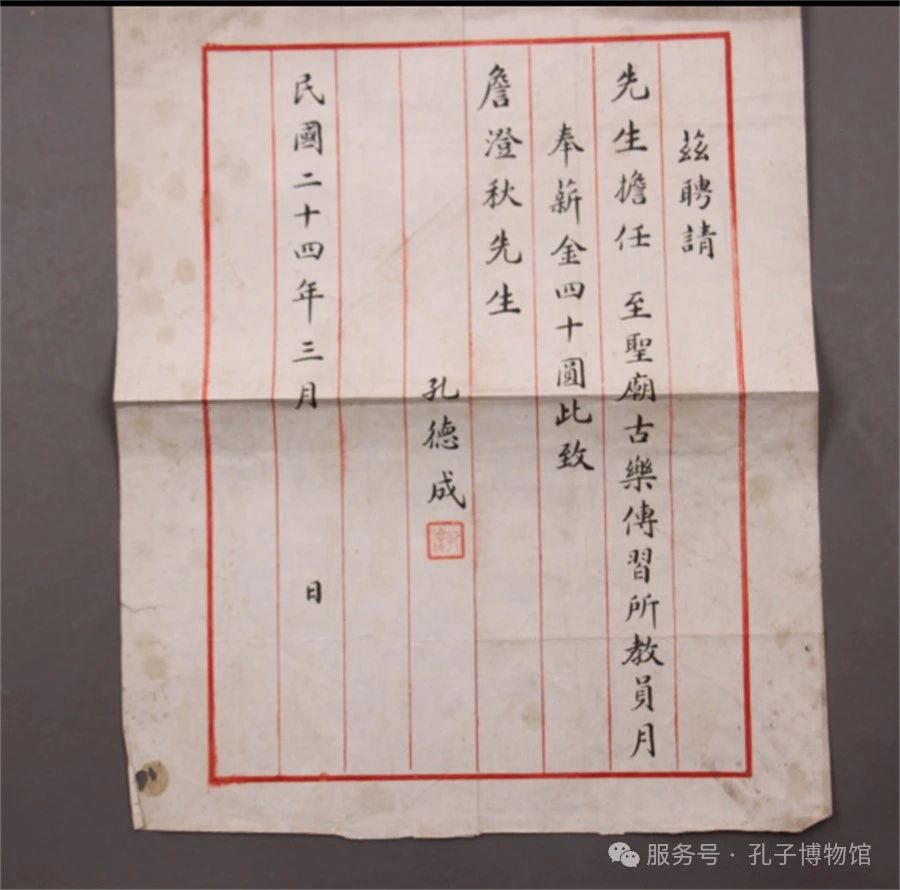 茲聘請
先生擔任 至聖廟古樂傳習所教員月
奉薪金四十圓此致
詹澄秋先生
孔德成
民國二十四年三月 日
服务号 · 孔子博物馆